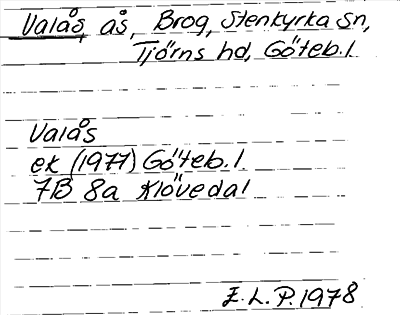 Valås, ås, Brog, Stenkyrka sn,
Tjörns hd, Göteb.l
Valås
ek (1977) Göteb.l.
7B 8a Klövedal
E.L.P.1978